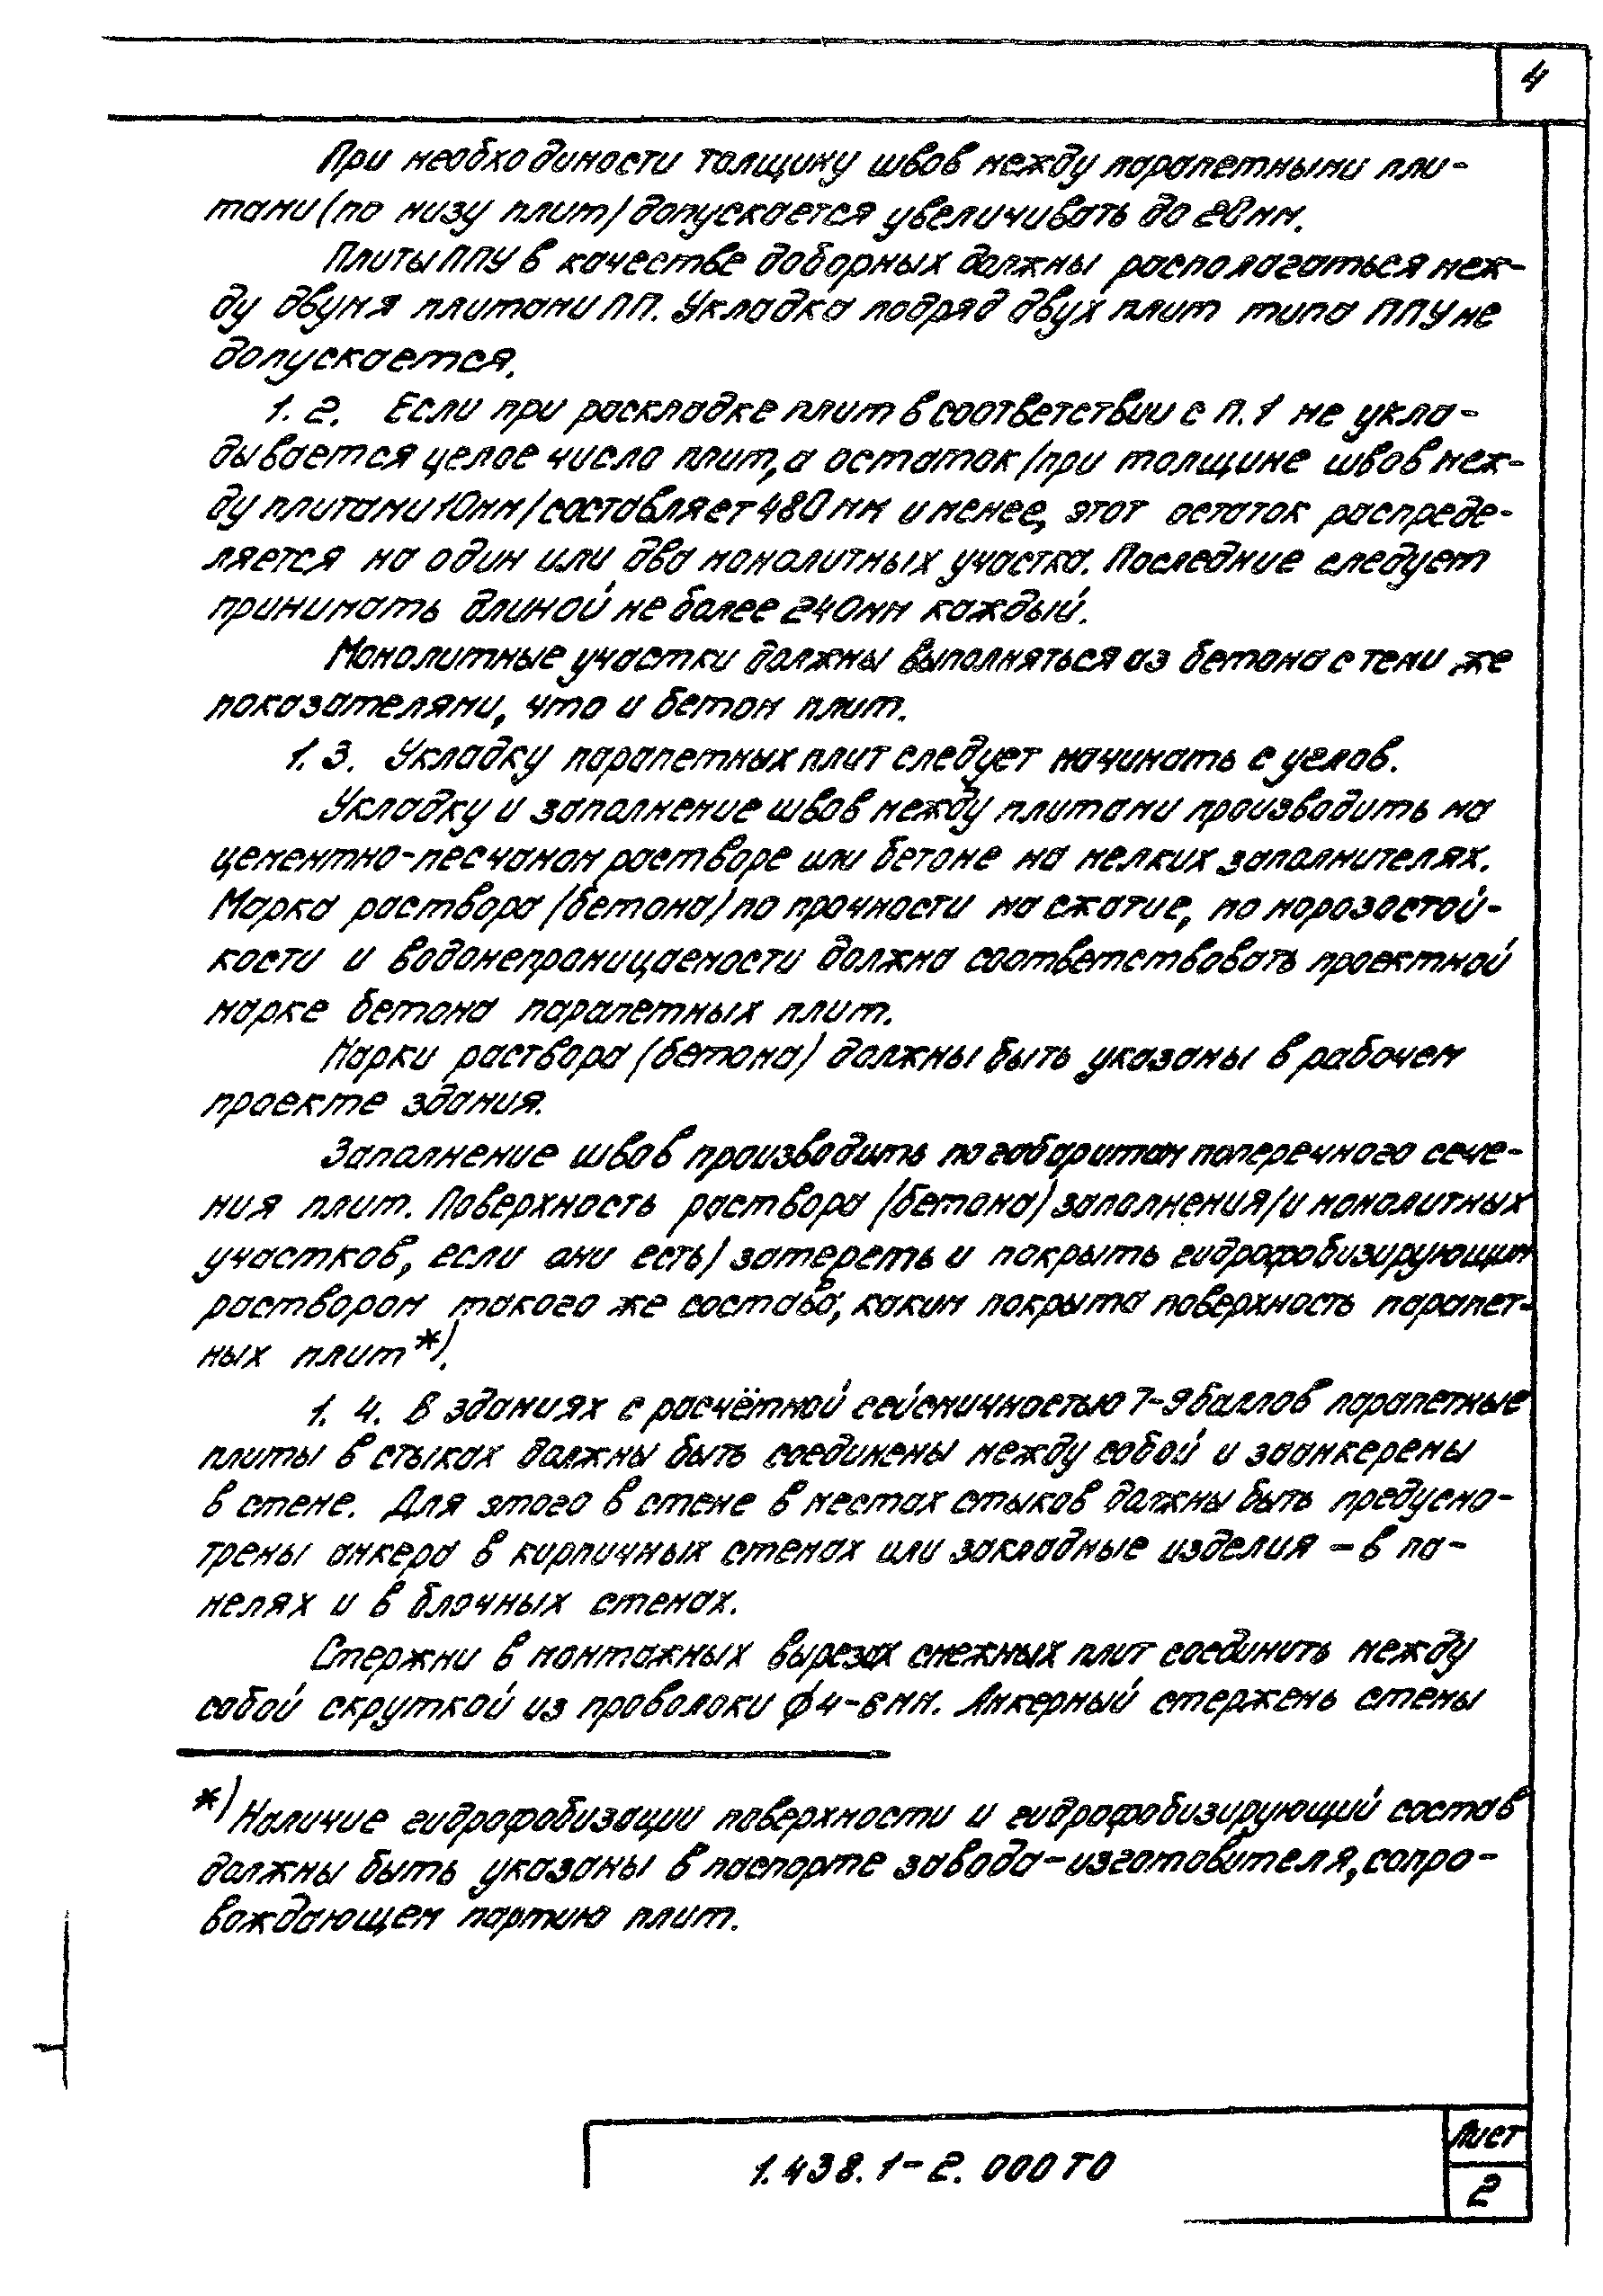 4
При необходимости толщину швов между парапетными пли-
тами (по низу плит) допускается увеличивать до 20 мм.
Плиты ППУ в качестве доборных должны располагаться меж-
ду двумя плитами ПП. Укладка подряд двух плит типа ППУ не
допускается.
1.2. Если при раскладке плит в соответствии с п.1 не укла-
дывается целое число плит, а остаток /при толщине швов меж-
ду плитами 10мм/ составляет 480 мм и менее, этот остаток распреде-
ляется на один или два монолитных участка. Последние следует
принимать длиной не более 240мм каждый.
Монолитные участки должны выполняться из бетона с теми же
показателями, что и бетон плит.
1.3. Укладку парапетных плит следует начинать с углов.
Укладку и заполнение швов между плитами производить на
цементно-песчаном растворе или бетоне на мелких заполнителях.
Марка раствора (бетона) по прочности на сжатие, по морозостой-
кости и водонепроницаемости должна соответствовать проектной
марке бетона парапетных плит.
Марки раствора (бетона) должны быть указаны в рабочем
проекте здания.
Заполнение швов производить по габаритам поперечного сече-
ния плит. Поверхность раствора (бетона) заполнения (и монолитных
участков, если они есть) затереть и покрыть гидрофобизирующим
раствором такого же состава, каким покрыта поверхность парапет-
ных плит*).
1.4. В зданиях с расчётной сейсмичностью 7-9 баллов парапетные
плиты в стыках должны быть соединены между собой и заанкерены
в стене. Для этого в стене в местах стыков должны быть предусмо-
трены анкера в кирпичных стенах или закладные изделия - в па-
нелях и в блочных стенах.
Стержни в монтажных вырезах смежных плит соединить между
собой скруткой из проволоки ϕ4-6мм. Анкерный стержень стены
*) Наличие гидрофобизации поверхности и гидрофобизирующий состав
должны быть указаны в паспорте завода-изготовителя, сопро-
вождающем партию плит.
1.438.1-2.000 ТО
Лист
2